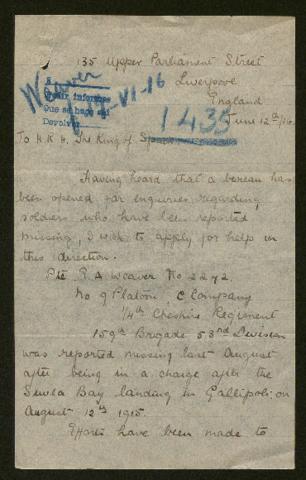 135 Upper Parliament Street
Liverpool
England
June 12th/16
Weaver
17-VI-16
Quedar informes
Que se haga
Devolver
1435
To H.R.H. The King of Spain
Having heard that a bureau has
been opened for enquiries regarding
soldiers who have been reported
missing, I wish to apply for help in
this direction.
Pte R. A Weaver No 2272
No 9 Platoon C Company
1/4th Cheshire Regiment
159th Brigade 53rd Division
was reported missing last August
after being in a charge after the
Suvla Bay landing in Gallipoli on
August 12th 1915.
Efforts have been made to